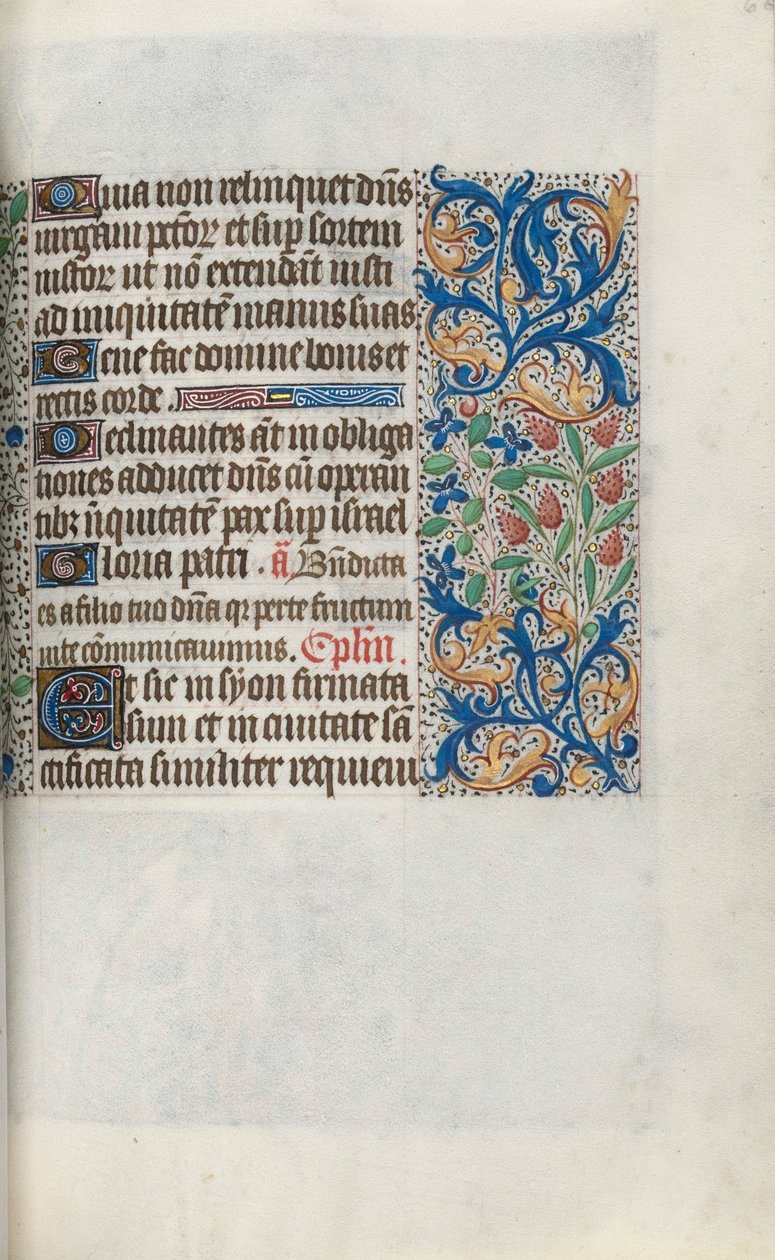 Quia non relinquet dn̄s
uirgam pctōꝝ et sup sortem
iustoꝝ ut nō extendāt iusti
ad iniquitatē manus suas
Bene fac domine bonis et
rectis corde.
Declinantes āt in obliga
tiones adducet dn̄s cū operan
tibꝫ īiquitatē pax sup israel
Gloria patri. ā. Bn̄dicta
es a filio tuo dn̄a qꝛ per te fructum
uite cōmunicauimus. Cpl̄m.
Et sic in syon firmata
sum et in ciuitate sā
ctificata similiter requieui